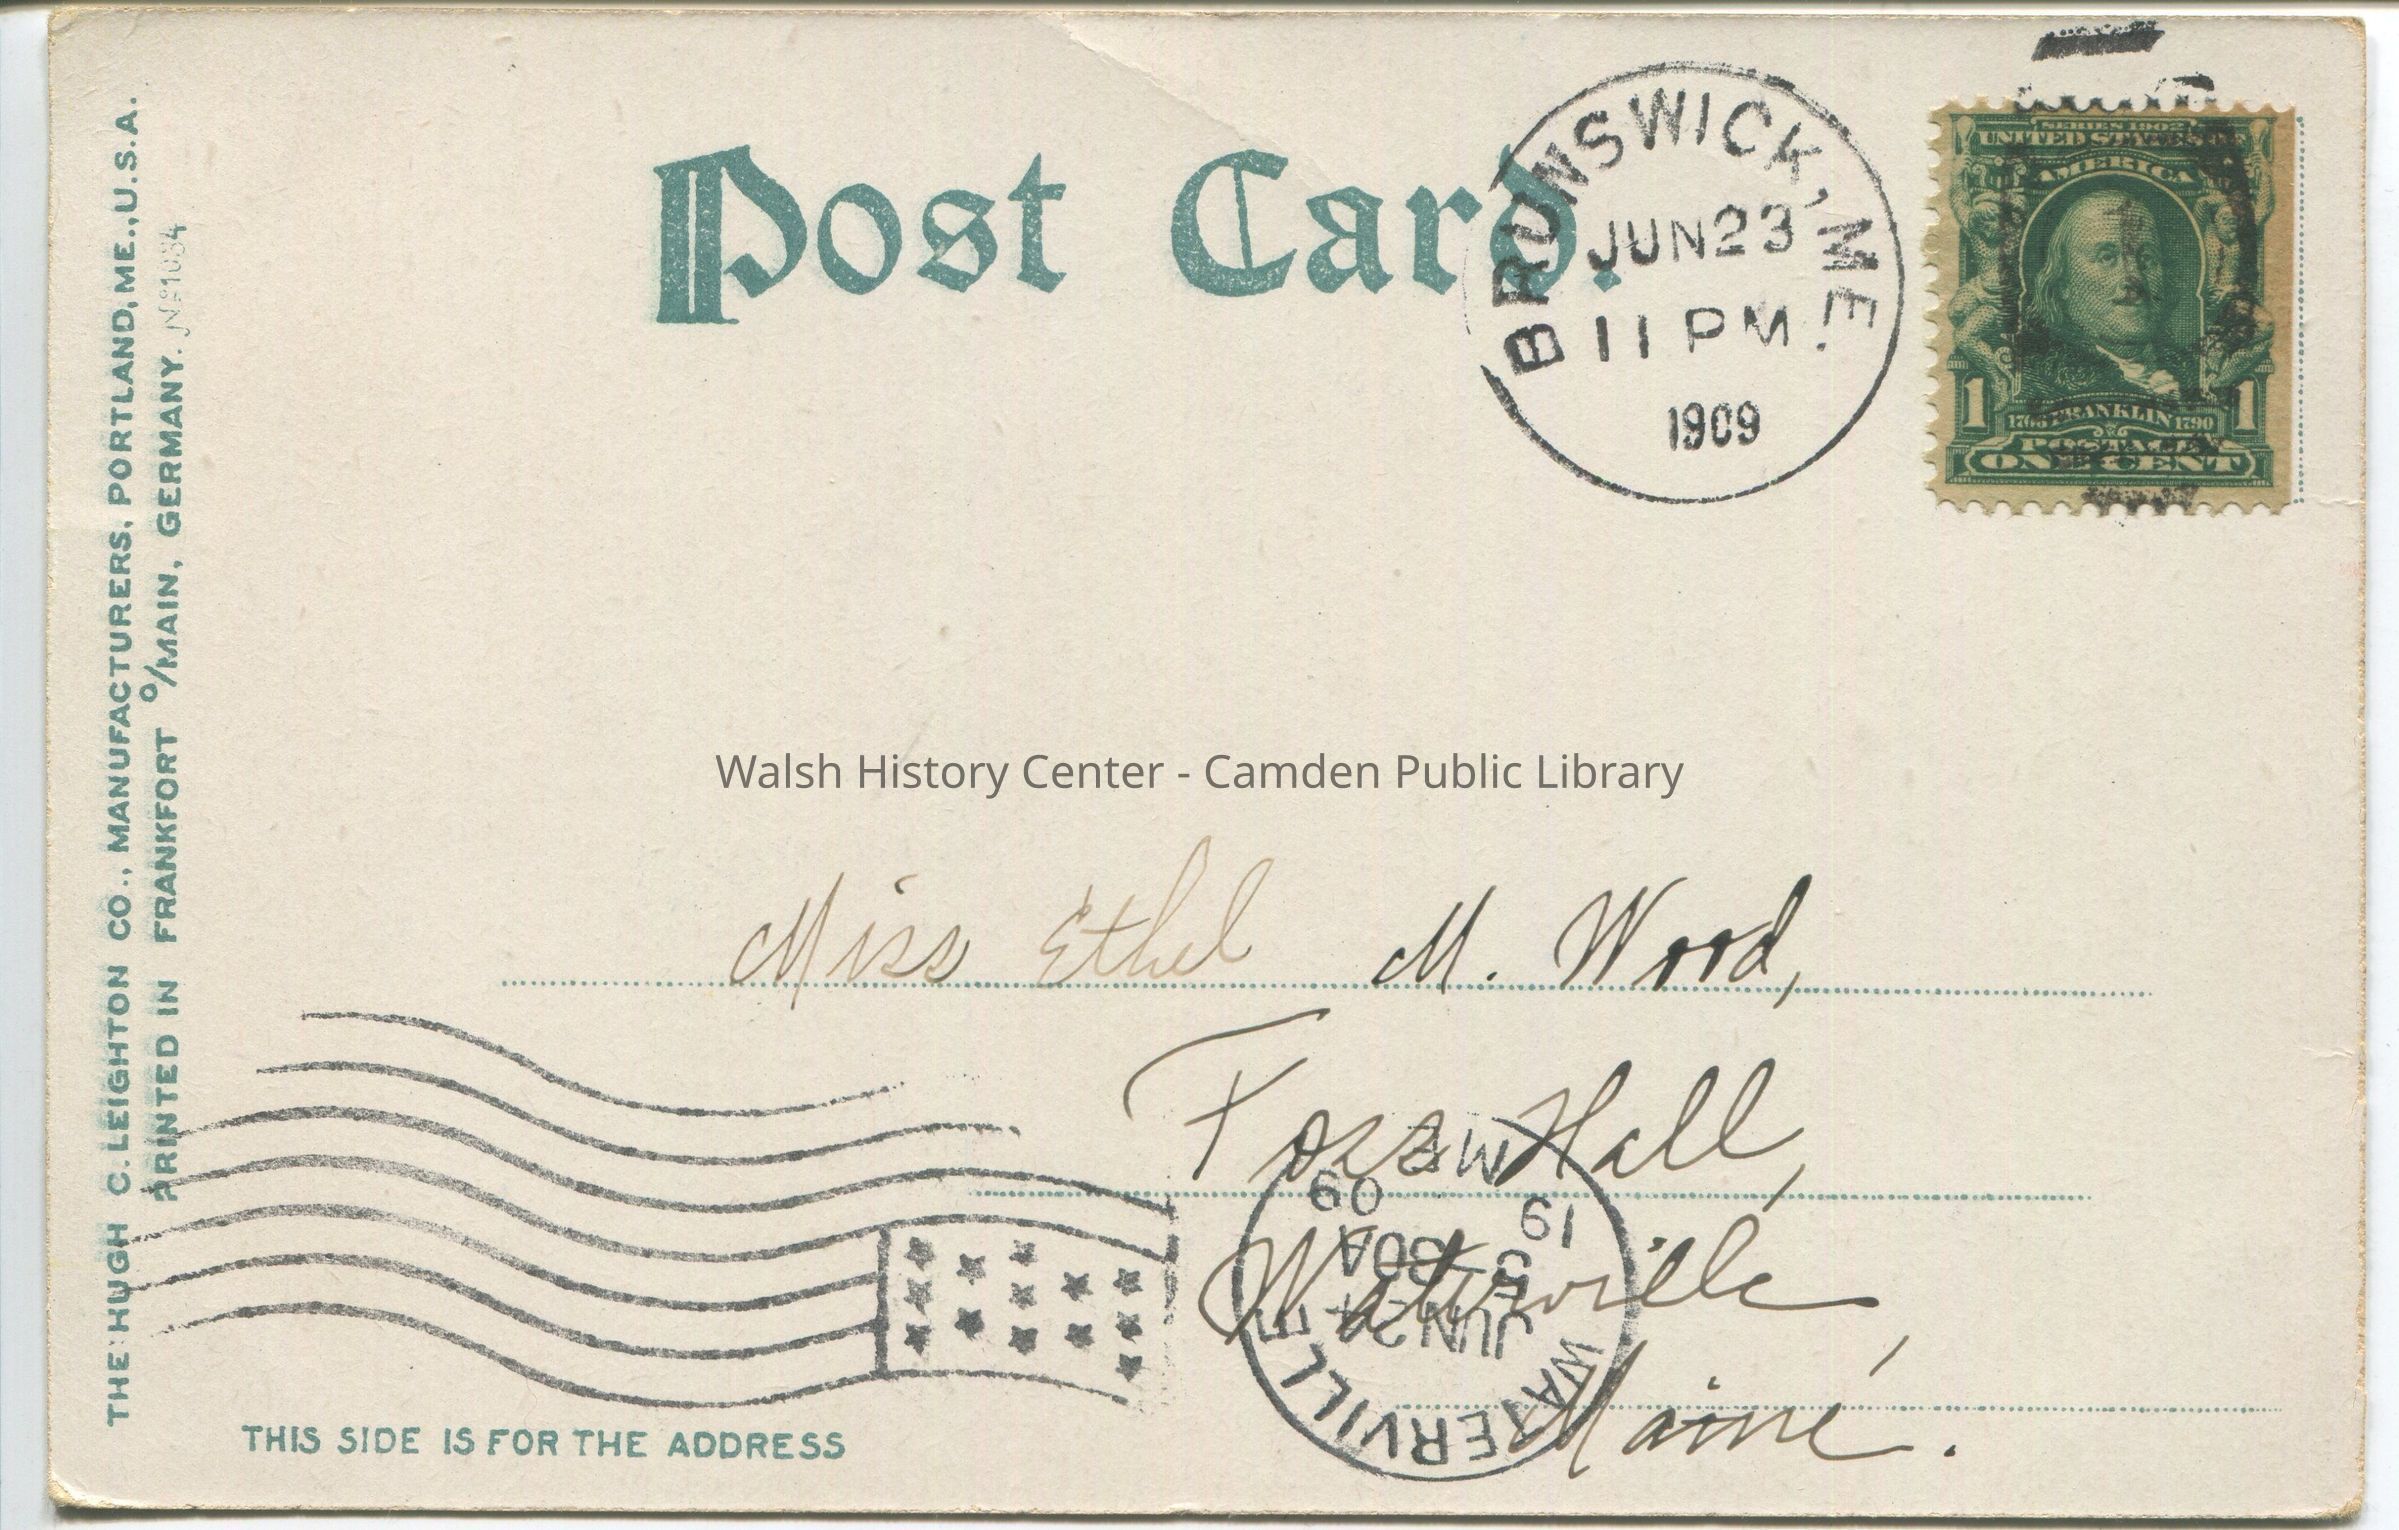 THE HUGH C. LEIGHTON CO., MANUFACTURERS, PORTLAND, ME., U.S.A.
PRINTED IN FRANKFORT O/MAIN, GERMANY. No 1084
Post Card.
BRUNSWICK, ME.
JUN 23
11 PM
1909
SERIES 1902
UNITED STATES OF
AMERICA
1 1
1706 FRANKLIN 1790
POSTAGE
ONE CENT
Walsh History Center - Camden Public Library
Miss Ethel M. Wood,
Foss Hall,
Waterville,
Maine.
WATERVILLE
JUN 24
5 30A
19 09
ME
THIS SIDE IS FOR THE ADDRESS